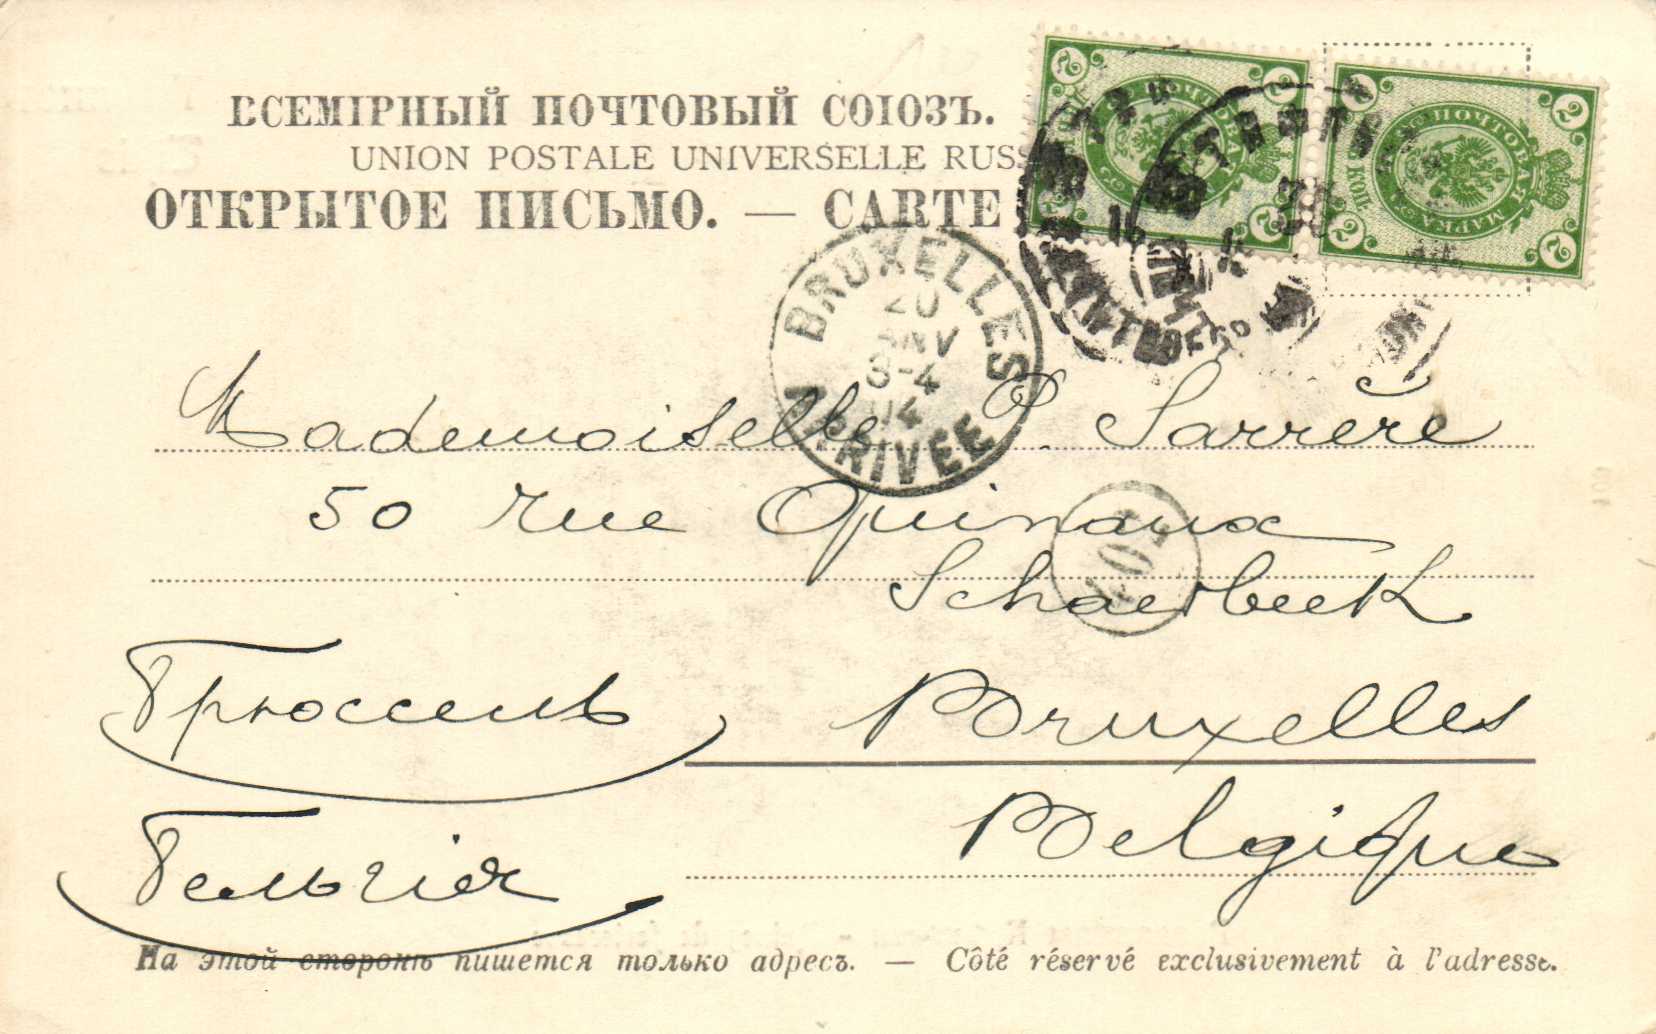 ВСЕМІРНЫЙ ПОЧТОВЫЙ СОЮЗЪ.
UNION POSTALE UNIVERSELLE RUSS
ОТКРЫТОЕ ПИСЬМО. — CARTE
2 2
ПОЧТОВАЯ МАРКА
2 2
2 2
ПОЧТОВАЯ МАРКА
КОП.
2 2
BRUXELLES
20
JANV
3-4
04
ARRIVÉE
Mademoiselle P. Sarrère
50 rue Quinaux
Schaerbeek
Брюссель
Bruxelles
Бельгія
Belgique
На этой сторонѣ пишется только адресъ. — Côté réservé exclusivement à l'adresse.